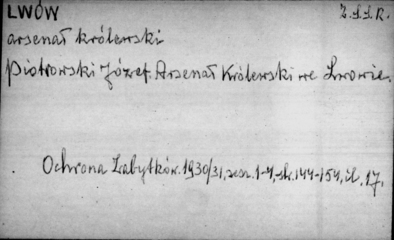 LWÓW Z.S.S.R.
arsenał królewski
Piotrowski Józef. Arsenał Królewski we Lwowie.
Ochrona Zabytków. 1930/31, zesz. 1-4, str. 144-154, il. 17.